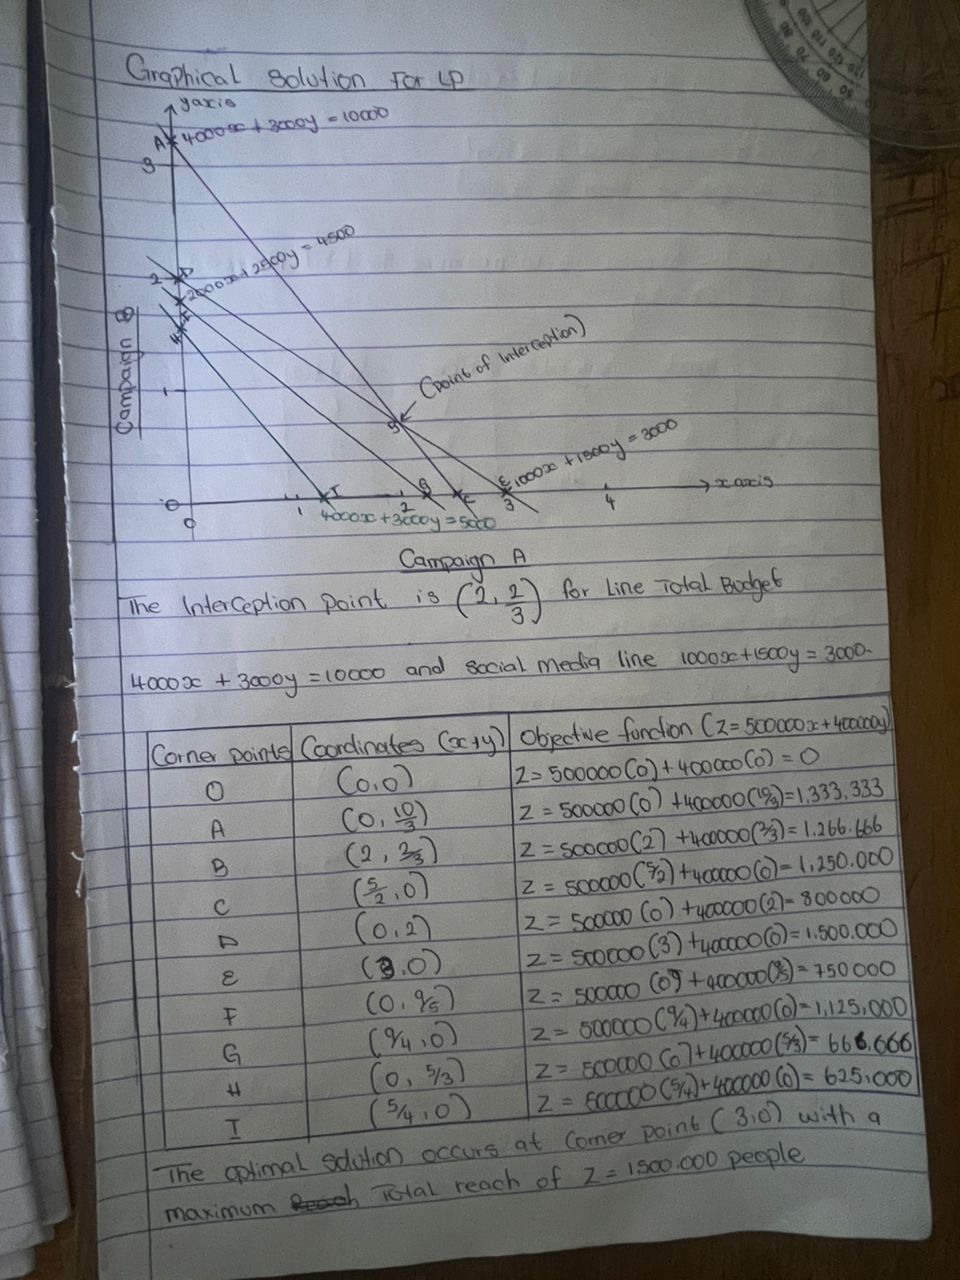 Graphical Solution For LP
yaxis
A 4000x + 3000y = 10000
3
2000x + 2500y = 4500
2 D
F
H
Campaign B
1
(point of Interception)
B
1000x + 1500y = 3000
0 1 I 2 G C E 3 4 x axis
0
4000x + 3000y = 5000
Campaign A
The Interception point is (2, 2/3) for Line Total Budget
4000x + 3000y = 10000 and social media line 1000x+1500y = 3000.
Corner points Coordinates (x+y) Objective function (Z=500000x+400000y)
O (0,0) Z= 500000(0)+400000(0) = 0
A (0, 10/3) Z = 500000(0) +400000(10/3)=1,333,333
B (2, 2/3) Z = 500000(2) +400000(2/3)= 1.266.666
C (5/2, 0) Z = 500000(5/2)+400000(0)= 1,250.000
D (0,2) Z = 500000(0) +400000(2)= 800000
E (3,0) Z = 500000(3) +400000(0)= 1,500.000
F (0, 9/5) Z = 500000(0) +400000(9/5)= 750000
G (9/4, 0) Z = 500000(9/4)+400000(0)=1,125,000
H (0, 5/3) Z = 500000(0)+400000(5/3)= 666.666
I (5/4, 0) Z = 500000(5/4)+400000(0)= 625,000
The optimal solution occurs at Corner point (3,0) with a
maximum Total reach of Z = 1500.000 people